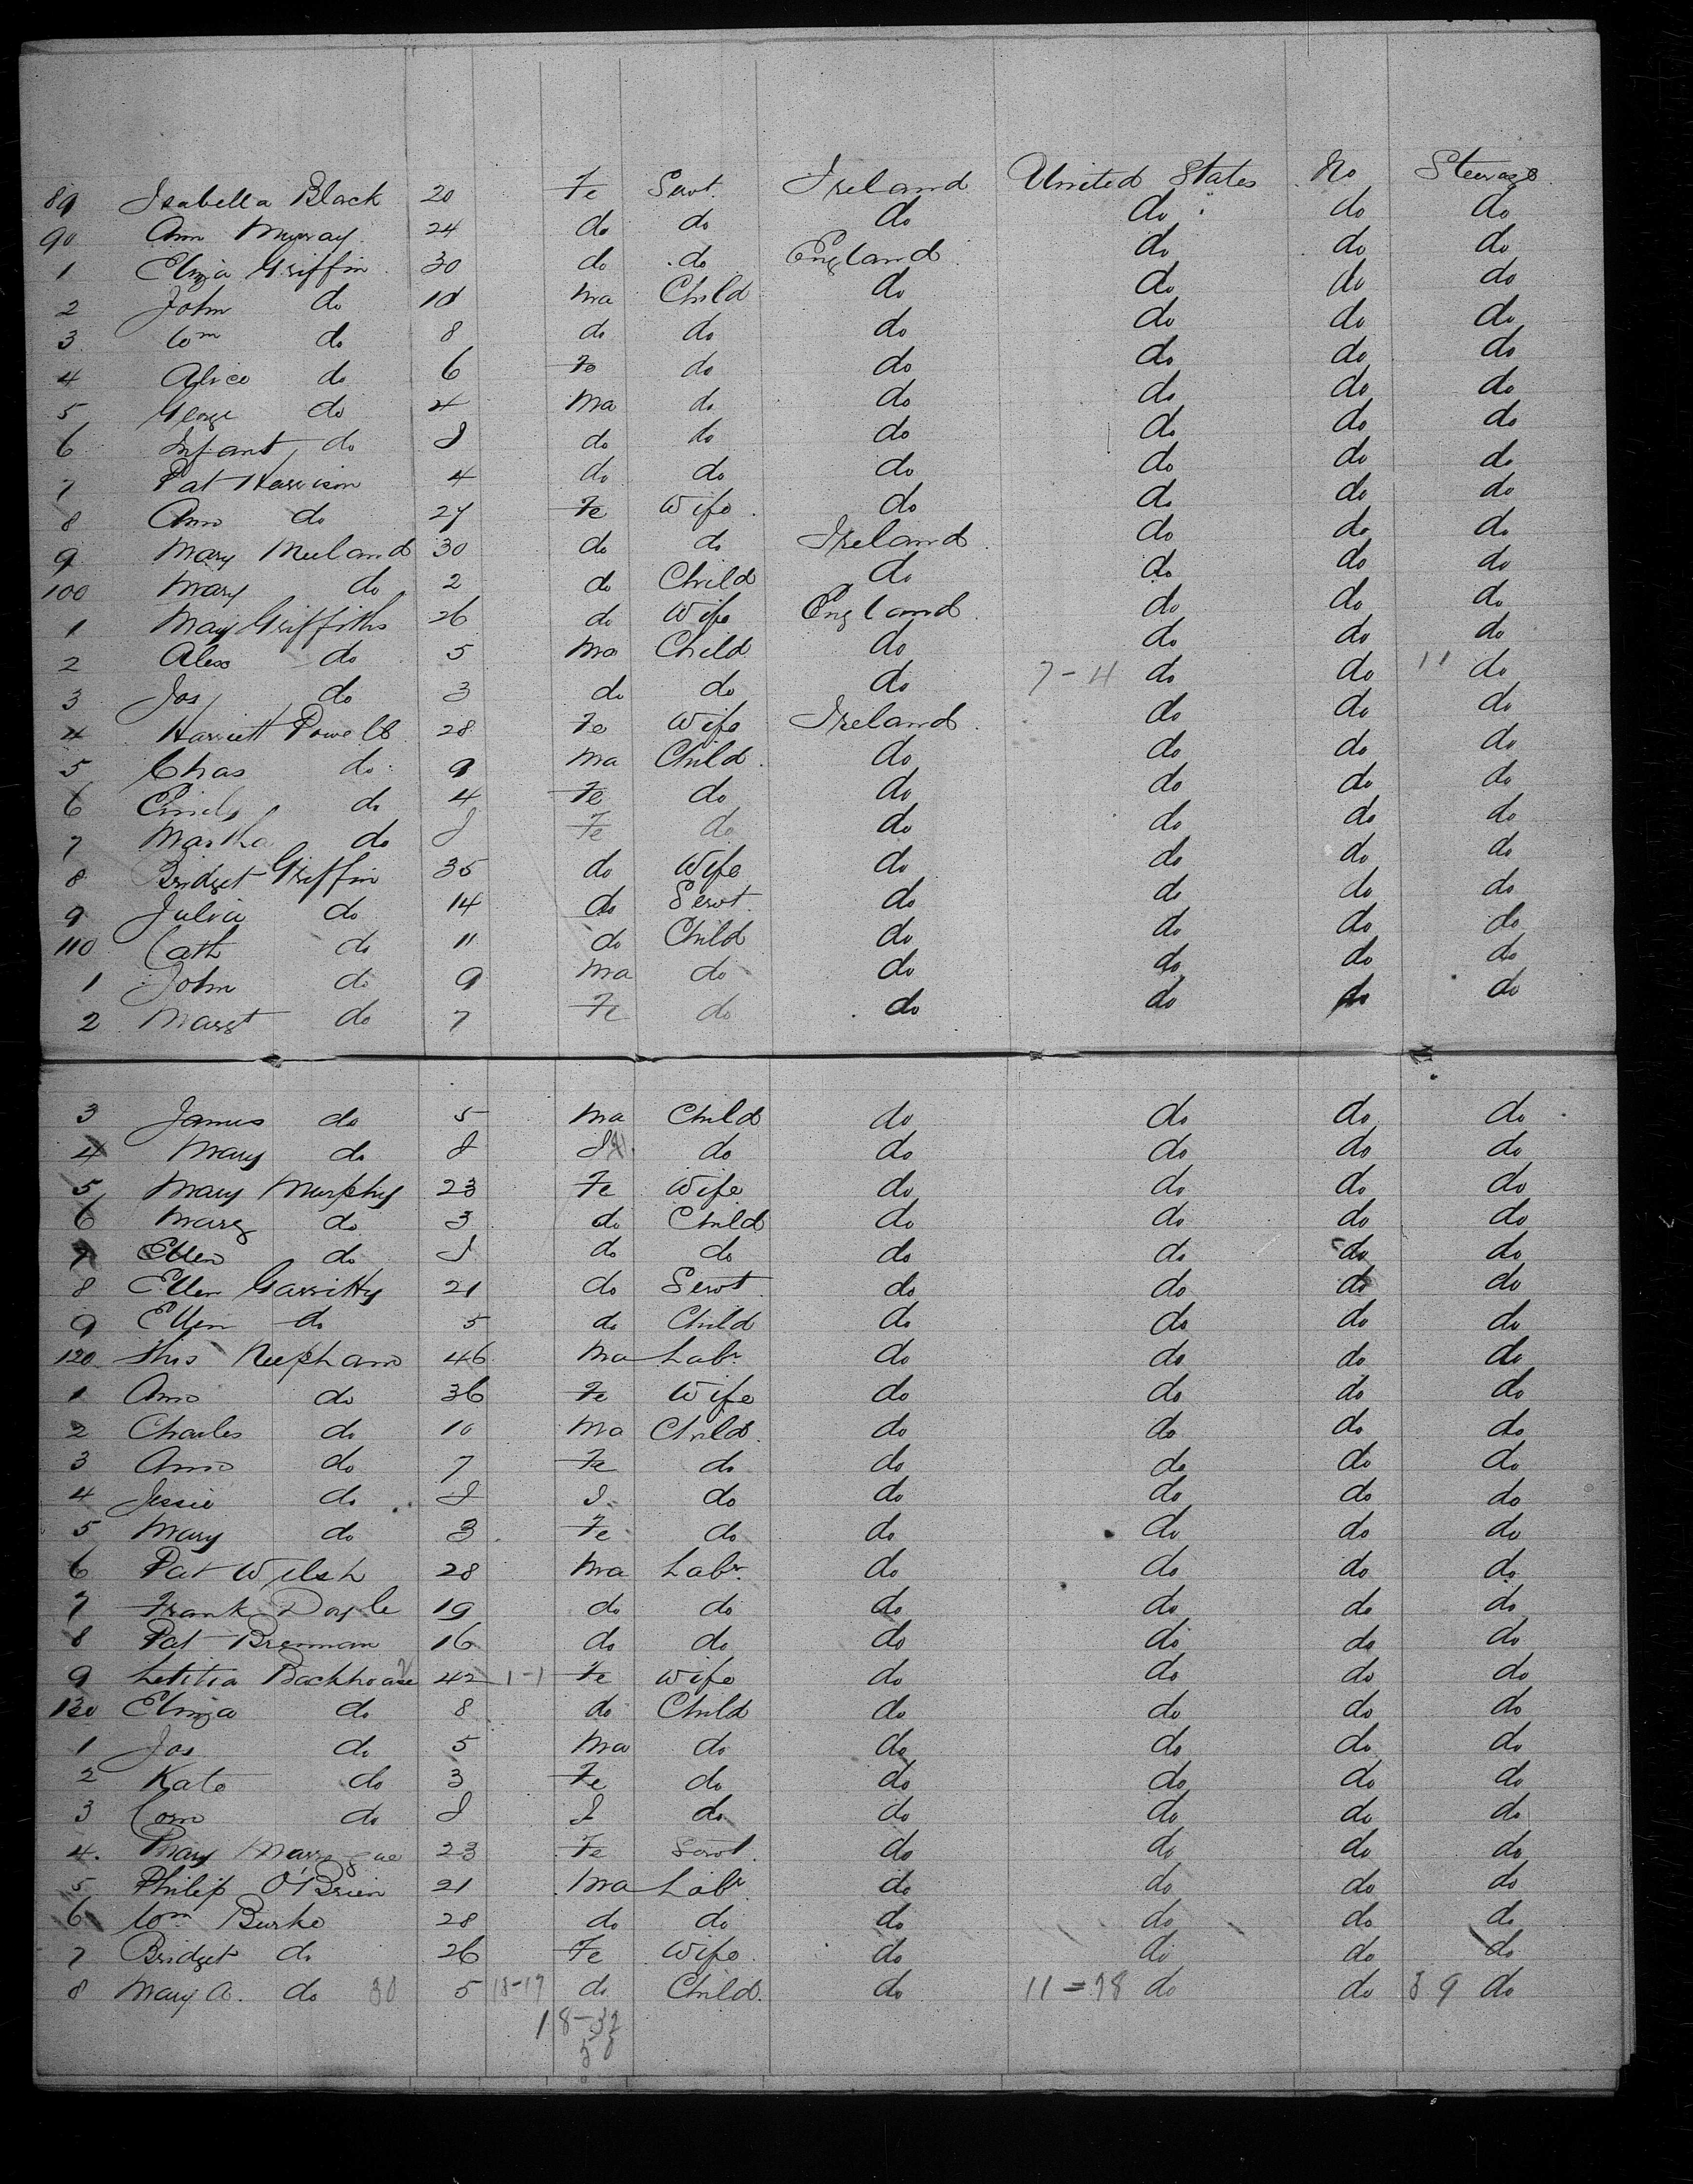 89 Isabella Black 20 Fe Servt Ireland United States No Steerage
90 Ann Murray 24 do do do do do do
1 Eliza Griffin 30 do do England do do do
2 John do 10 Ma Child do do do do
3 Wm do 8 do do do do do do
4 Alice do 6 Fe do do do do do
5 George do 4 Ma do do do do do
6 Infant do I do do do do do do
7 Pat Harrison 4 do do do do do do
8 Ann do 27 Fe Wife do do do do
9 Mary Meeland 30 do do Ireland do do do
100 Mary do 2 do Child do do do do
1 Mary Griffiths 26 do Wife England do do do
2 Alex do 5 Ma Child do do do do
3 Jas do 3 do do do 7-4 do do 11 do
4 Harriett Powell 28 Fe Wife Ireland do do do
5 Chas do 9 Ma Child do do do do
6 Emily do 4 Fe do do do do do
7 Martha do I Fe do do do do do
8 Bridget Griffin 35 do Wife do do do do
9 Julia do 14 do Servt do do do do
110 Cath do 11 do Child do do do do
1 John do 9 Ma do do do do do
2 Margt do 7 Fe do do do do do
3 James do 5 Ma Child do do do do
4 Mary do I I do do do do do
5 Mary Murphy 23 Fe Wife do do do do
6 Marg do 3 do Child do do do do
7 Ellen do I do do do do do do
8 Ellen Garritty 21 do Servt do do do do
9 Ellen do 5 do Child do do do do
120 Thos Neepham 46 Ma Labr do do do do
1 Ann do 36 Fe Wife do do do do
2 Charles do 10 Ma Child do do do do
3 Ann do 7 Fe do do do do do
4 Jessie do I I do do do do do
5 Mary do 3 Fe do do do do do
6 Pat Welsh 28 Ma Labr do do do do
7 Frank Doyle 19 do do do do do do
8 Pat Brennan 16 do do do do do do
9 Letitia Backhouse 42 1-1 Fe Wife do do do do
130 Eliza do 8 do Child do do do do
1 Jas do 5 Ma do do do do do
2 Kate do 3 Fe do do do do do
3 do I I do do do do do
4. Mary 23 Fe Servt do do do do
5 Philip O'Brien 21 Ma Labr do do do do
6 Wm Burke 28 do do do do do do
7 Bridget do 26 Fe Wife do do do do
8 Mary A. do 30 5 18-19 do Child do 11=18 do do 39 do
18-32
50